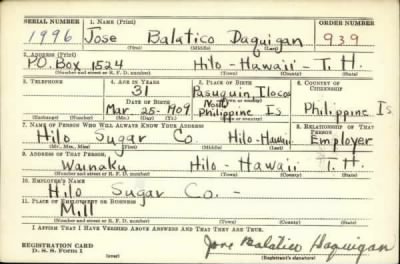 SERIAL NUMBER 1. NAME (Print) ORDER NUMBER
1996 Jose Balatico Daquigan 939
(First) (Middle) (Last)
2. ADDRESS (Print)
P.O. Box 1524 Hilo - Hawaii - T. H.
(Number and street or R. F. D. number) (Town) (County) (State)
3. TELEPHONE 4. AGE IN YEARS 5. PLACE OF BIRTH 6. COUNTRY OF CITIZENSHIP
31 Pasuquin, Ilocos
DATE OF BIRTH North
Mar 25 - 1909 Philippine Is Philippine Is
(Exchange) (Number) (Mo.) (Day) (Yr.) (State or country)
7. NAME OF PERSON WHO WILL ALWAYS KNOW YOUR ADDRESS 8. RELATIONSHIP OF THAT PERSON
Hilo Sugar Co. Hilo-Hawaii Employer
(Mr., Mrs., Miss) (First) (Middle) (Last)
9. ADDRESS OF THAT PERSON
Wainaku Hilo - Hawaii T. H.
(Number and street or R. F. D. number) (Town) (County) (State)
10. EMPLOYER'S NAME
Hilo Sugar Co. -
11. PLACE OF EMPLOYMENT OR BUSINESS
Mill
(Number and street or R. F. D. number) (Town) (County) (State)
I AFFIRM THAT I HAVE VERIFIED ABOVE ANSWERS AND THAT THEY ARE TRUE.
REGISTRATION CARD
D. S. S. Form 1 (over) Jose Balatico Daquigan
(Registrant's signature)